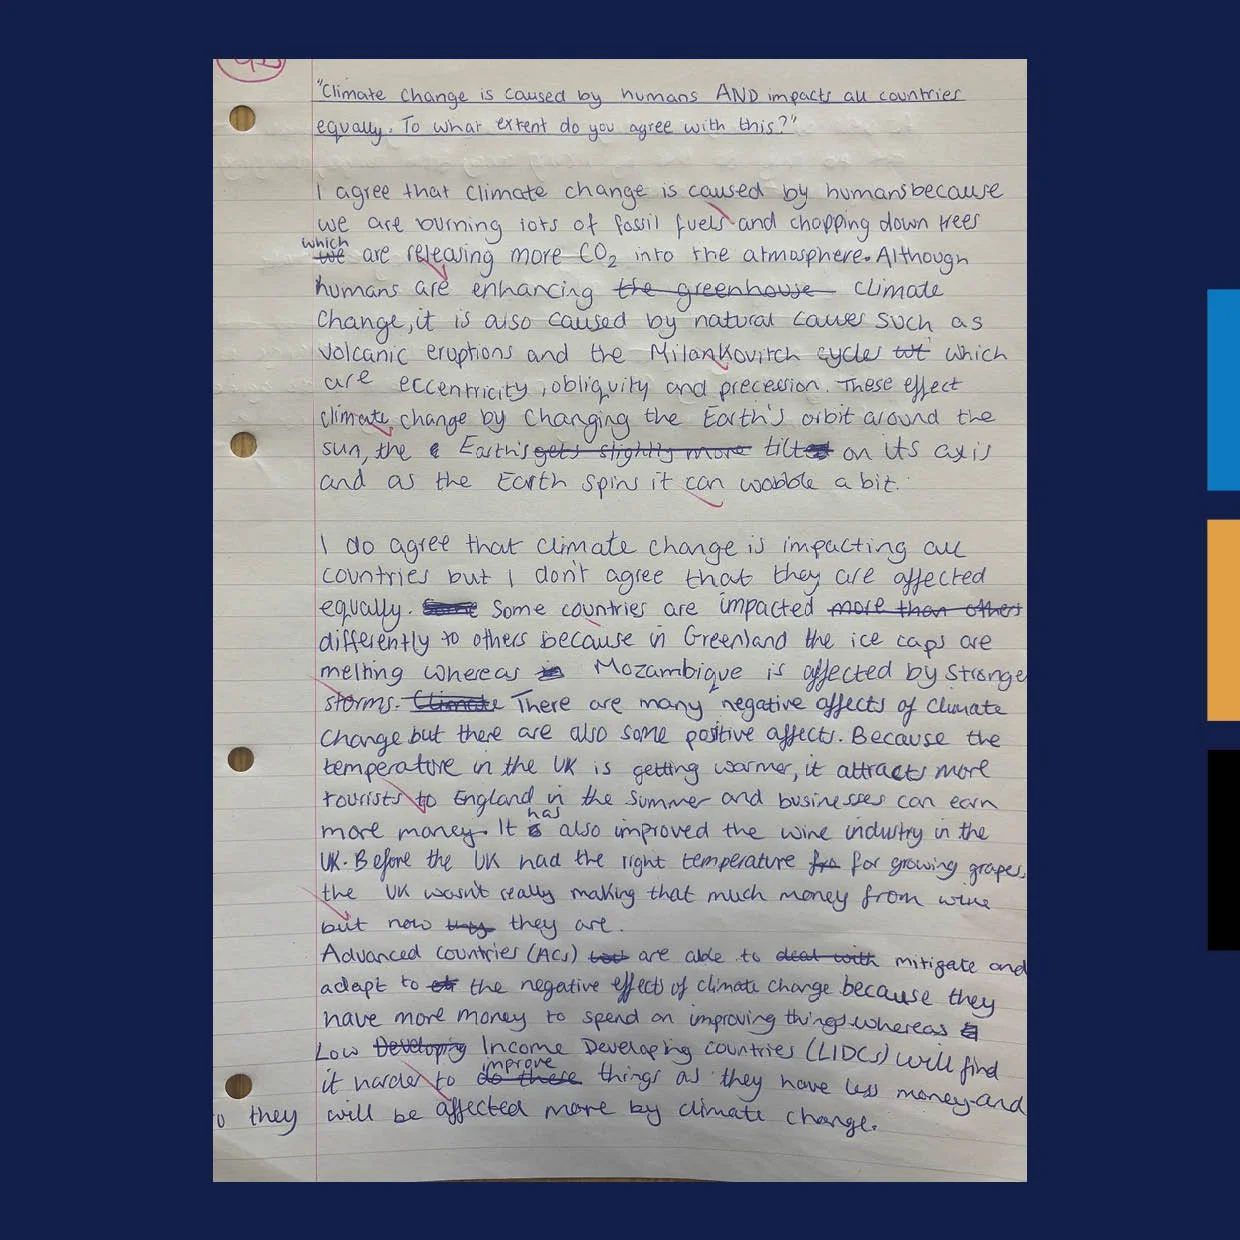 "Climate change is caused by humans AND impacts all countries
equally. To what extent do you agree with this?"
I agree that climate change is caused by humans because
we are burning lots of fossil fuels and chopping down trees
which
we are releasing more CO2 into the atmosphere. Although
humans are enhancing the greenhouse climate
change, it is also caused by natural causes such as
volcanic eruptions and the Milankovitch cycles which
are eccentricity, obliquity and precession. These effect
climate change by changing the Earth's orbit around the
sun, the Earth's gets slightly more tilt on its axis
and as the Earth spins it can wobble a bit.
I do agree that climate change is impacting all
countries but I don't agree that they are affected
equally. Some countries are impacted more than others
differently to others because in Greenland the ice caps are
melting whereas in Mozambique is affected by strange
storms. Climate There are many negative affects of climate
change but there are also some positive affects. Because the
temperature in the UK is getting warmer, it attracts more
tourists to England in the summer and businesses can earn
has
more money. It is also improved the wine industry in the
UK. Before the UK had the right temperature for growing grapes,
the UK wasn't really making that much money from wine
but now they they are.
Advanced countries (ACs) are able to deal with mitigate and
adapt to the negative effects of climate change because they
have more money to spend on improving things whereas
Low Developing Income Developing countries (LIDCs) will find
improve
it harder to do these things as they have less money and
so they will be affected more by climate change.